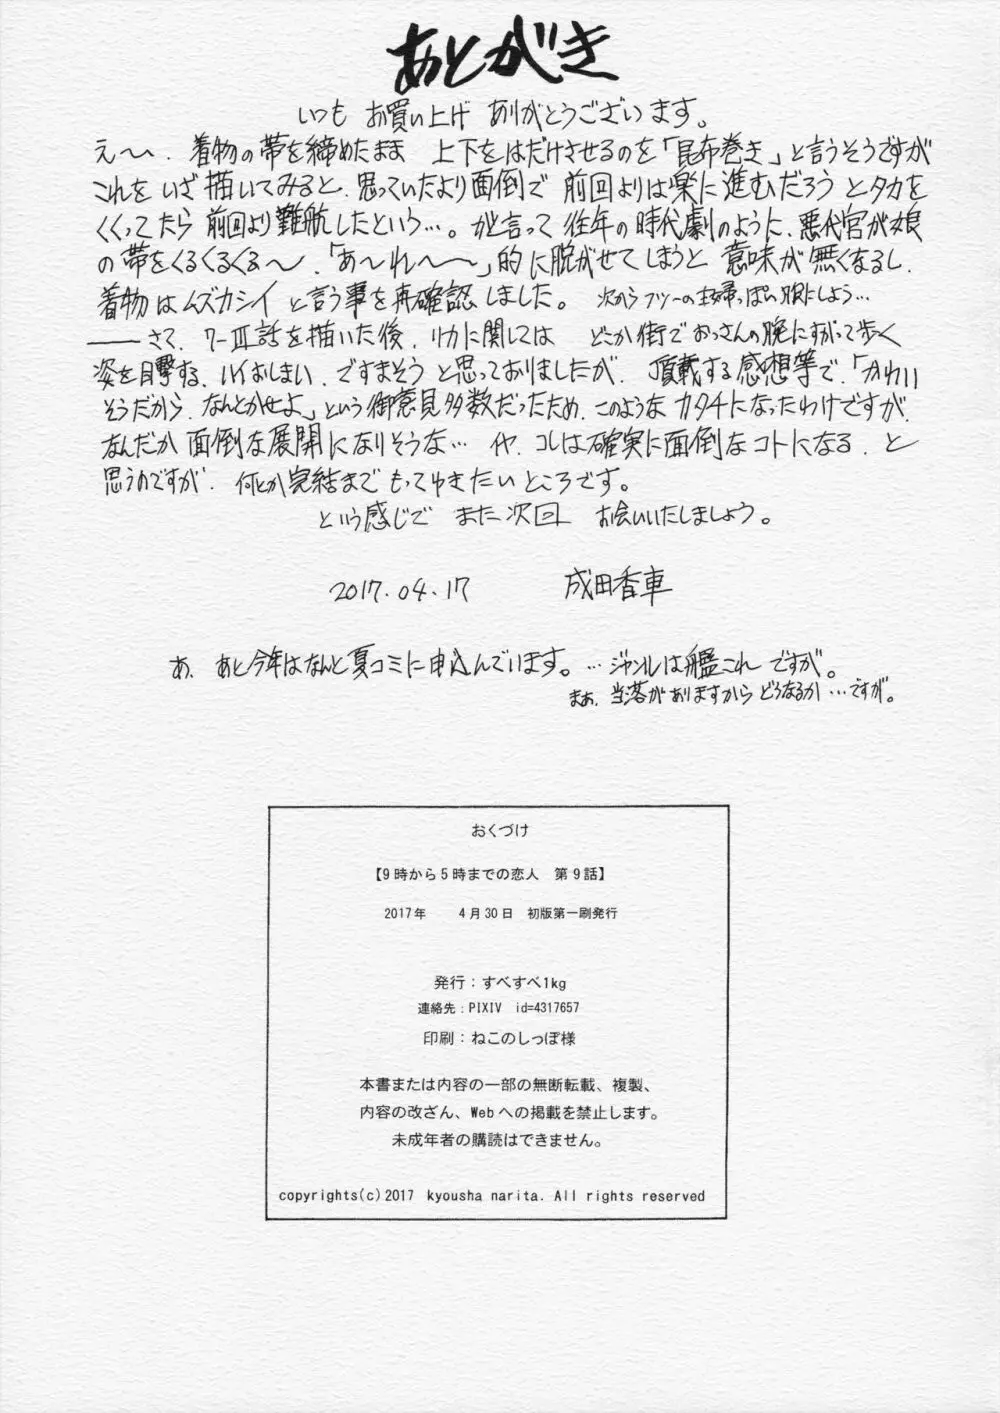 あとがき
いつも お買い上げ ありがとうございます。
え〜〜、着物の帯を締めたまま 上下をはだけさせるのを「昆布巻き」と言うそうですが
これを いざ 描いてみると、思っていたより面倒で 前回よりは楽に進むだろう とタカを
くくってたら 前回より難航したという…。が言って 往年の時代劇のように、悪代官が娘
の帯をくるくるくる〜、「あ〜れ〜〜」的に脱がせてしまうと 意味が無くなるし、
着物はムズカシイ と言う事を再確認しました。 次からフツーの主婦っぽい服にしよう…
――さて、7-Ⅲ話を描いた後、リカに関しては どこか街でおっさんの腕にすがって歩く
姿を目撃する、ハイおしまい、ですまそう と思っておりましたが、頂戴する感想等で、「かわい
そうだから、なんとかせよ」という御意見多数だったため、このような カタチになったわけですが、
なんだか 面倒な展開になりそうな… イヤ、コレは確実に面倒なコトになる、と
思うのですが、何とか完結まで もってゆきたい ところです。
という感じで また次回 お会いいたしましょう。
2017.04.17 成田香車
あ、あと今年はなんと夏コミに申込んでいます。…ジャンルは艦これ ですが。
まぁ、当落がありますから どうなるか…ですが。
おくづけ
【9時から5時までの恋人 第9話】
2017年 4月30日 初版第一刷発行
発行：すべすべ1kg
連絡先：PIXIV id=4317657
印刷：ねこのしっぽ様
本書または内容の一部の無断転載、複製、
内容の改ざん、Webへの掲載を禁止します。
未成年者の購読はできません。
copyrights(c)2017 kyousha narita. All rights reserved